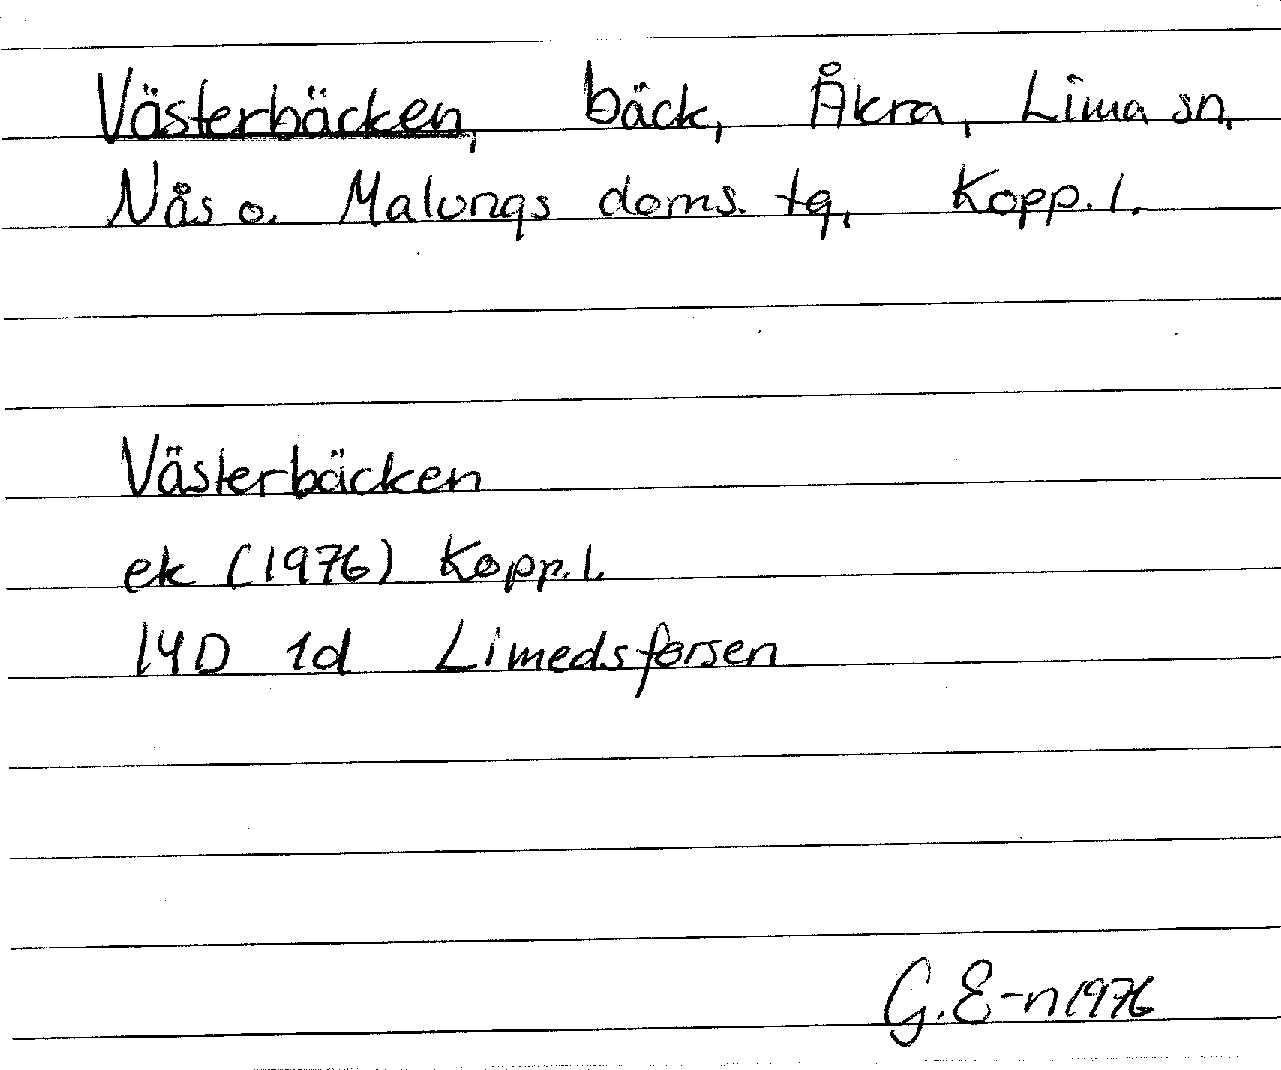 Västerbäcken, bäck, Åkra, Lima sn,
Nås o. Malungs doms. tg, Kopp. l.
Västerbäcken
ek (1976) Kopp. l.
14D 1d Limedsforsen
G. E-n 1976